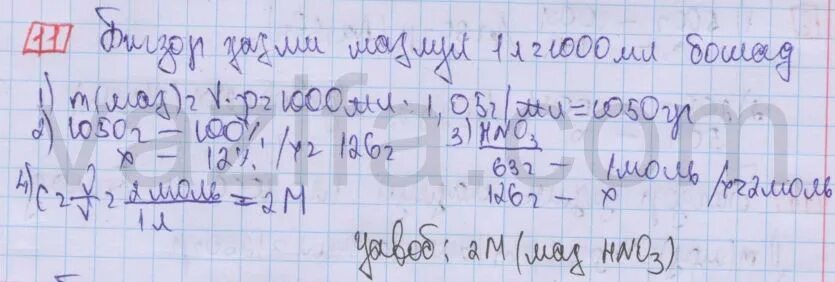 11 Бигзор ҳаҷми маҳлул 1л=1000мл бошад
1) m(маҳ)=V·ρ=1000мл·1,05г/мл=1050гр
2) 1050г — 100%
x — 12% /x=126г
3) HNO₃
63г — 1моль
126г — x /x=2моль
4) C=ν/V=2моль/1л=2М
Ҷавоб: 2М (маҳ HNO₃)
vazifa.com